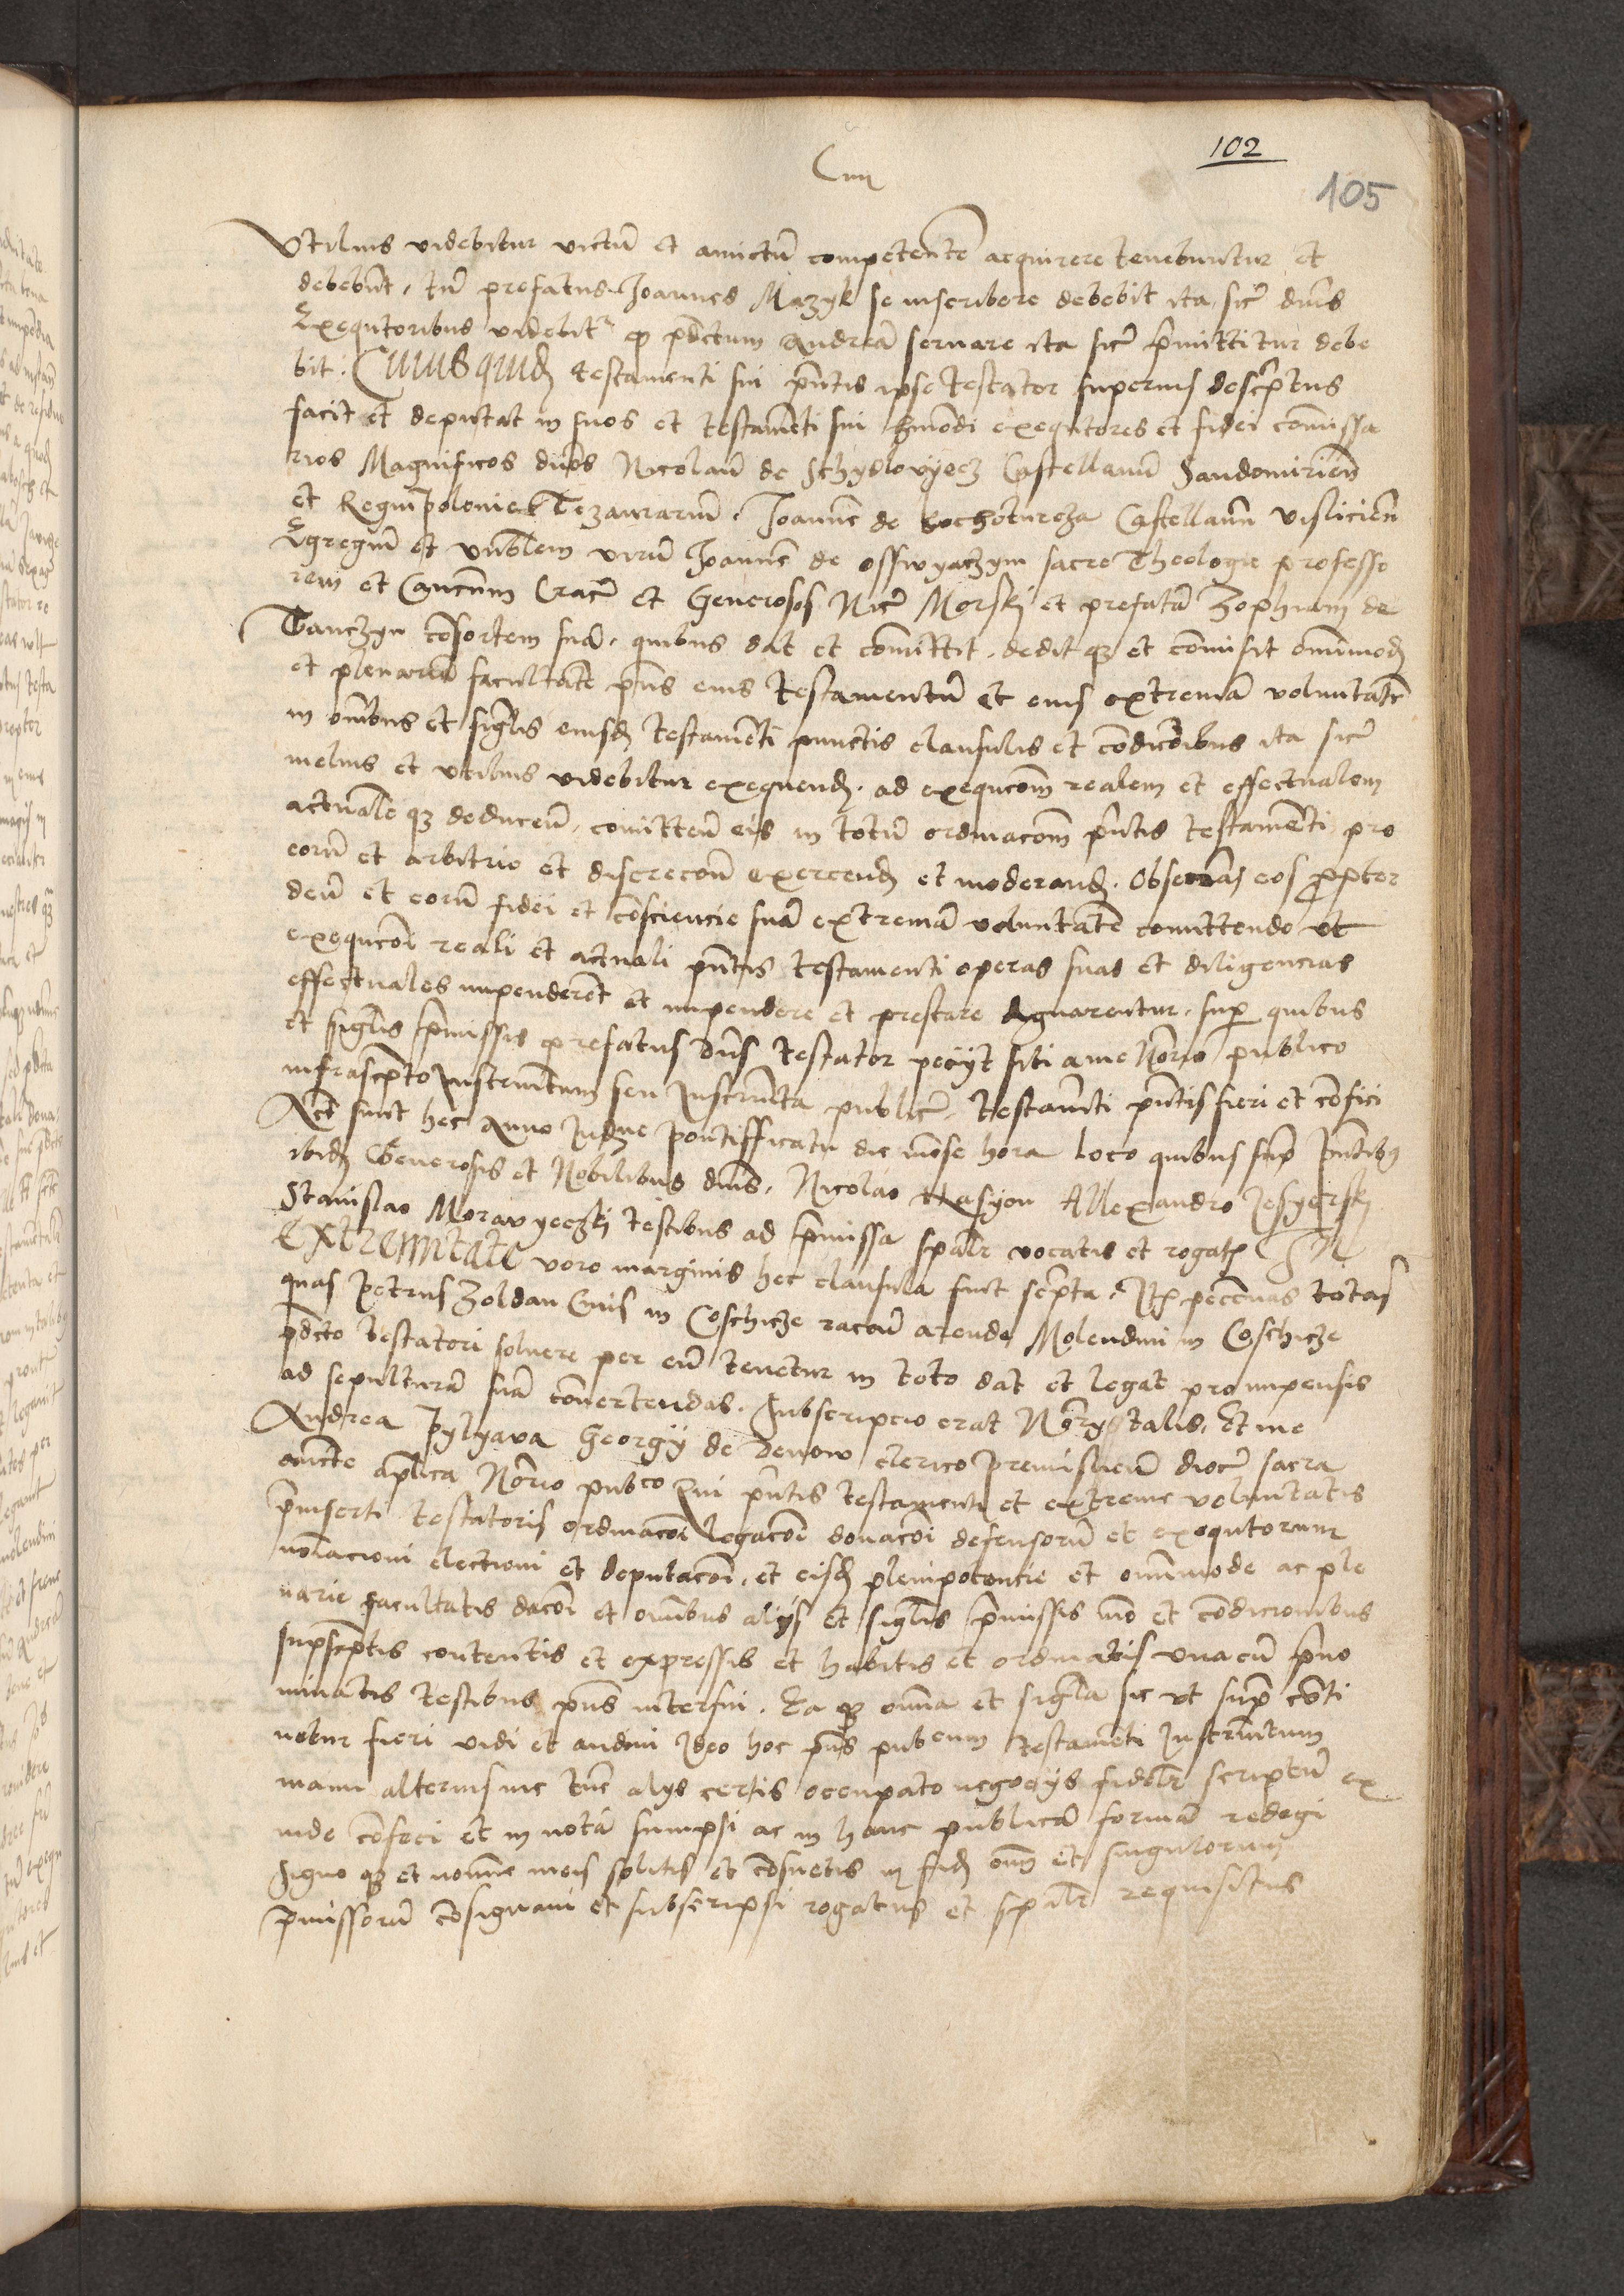 102
105
Ciiii
Utilius videbitur victu᷃ et amictu᷃ competente᷃ acquirere tenebuntur et
debebu᷃t, tu᷃c prefatus Joannes Mazyk se inscribere debebit ita sic᷃ dn᷃is
Exequtoribus videbit᷑ ꝙ pd᷃ictum Andrea᷃ servare ita sic᷃ p᷃mittitur debe
bit: Cuiusquid᷃ testamenti sui pn᷃tis ipse testator superius desc᷃ptus
facit et deputat in suos et testame᷃ti sui hm᷃odi exequtores et fidei com᷃issa
rios Magnificos dn᷃os Nicolau᷃ de Schydlovyecz Castellanu᷃ Sandomirien᷃
et Regni polonie Tezaurariu᷃, Joanne᷃ de Cochoturcza Castellanu᷃ Vislicien᷃
Egregiu᷃ et vn᷃blem viru᷃ Joanne᷃ de Osswyaczym sacre Theologie professo
rem et Canc᷃um Crac᷃ et Generosos Nic᷃ Morskj et prefata᷃ Zophiam de
Tanczyn co᷃sortem sua᷃, quibus dat et com᷃ittit, deditqꝫ et com᷃isit om᷃imod᷃
et plenaria᷃ facultate᷃ pn᷃s eius testamentu᷃ et eius extrema᷃ voluntate᷃
in om᷃ibus et sigl᷃is eiusd᷃ testame᷃ti punctis clausulis et co᷃dico᷃ibus ita sic᷃
melius et utilius videbitur exequend᷃, ad exequco᷃m realem et effectualem
actuale᷃qꝫ deducen᷃, comitten᷃ eis in totu᷃ ordinaco᷃m pn᷃tis testame᷃ti pro
eoru᷃ et arbitrio et discreco᷃m exercend᷃ et moderand᷃. Obsecra᷃s eos p᷃pter
deu᷃ et eoru᷃ fidei et co᷃sciencie sua᷃ extrema᷃ voluntate᷃ comittendo ut
exequco᷃i reali et actuali pn᷃tis testamenti operas suas et diligencias
effectuales impendere᷃t et impendere et prestare dignarentur, sup quibus
et sigl᷃is p᷃missis prefatus dn᷃s testator peciyt sibi a me No᷃rio publico
infrasc᷃pto Instrum᷃tum seu Instrum᷃ta publica᷃, testam᷃ti pn᷃tis fieri et co᷃fici
Acta᷃ sunt hec Anno Ind᷃ne pontifficatu die me᷃se hora loco quibus sup᷃ pn᷃tibꝫ
ibid᷃ Generosis et Nobilibus dn᷃is, Nicolao Allexandro Jesyerskj
Stanislao Moravyeczkj testibus ad p᷃missa sp᷃alr vocatis et rogat᷃ In
Extremitate vero marginis hec clausula fuit sc᷃pta, It᷃ peccunias totas
quas Petrus Zoldan Civis in Coschicze raco᷃e arende Molendini in Coschicze
pd᷃cto testatori solvere per eu᷃ tenetur in toto dat et legat pro impensis
ad sepultura᷃ sua᷃ convertendas. Subscripcio erat No᷃rij talis, Et me
Andrea Pylyava Georgij de Denow clerico Premislien᷃ dioc᷃ sacra
auc᷃te aplica᷃ No᷃rio pub᷃co Qui pn᷃tis testamenti et extreme voluntatis
p᷃inserti testatoris ordinaco᷃i legaco᷃i donaco᷃i defensoru᷃ et exequtorum
no᷃iacioni electioni et deputaco᷃i, et eisd᷃ plenipotencie et om᷃imode ac ple
narie facultatis daco᷃i et om᷃ibus alijs et sigl᷃is p᷃missis mo᷃ et co᷃dicionibus
supsc᷃ptis contentis et expressis et habitis et ordinatis unacu᷃ p᷃no
minatis testibus pn᷃s interfui. Eaqꝫ om᷃ia et sigl᷃a sic ut sup᷃ co᷃ti
netur fieri vidi et audivi Ideo hoc pn᷃s pubcum testame᷃ti Instrum᷃tum
manu alterius me tu᷃c alys certis occupato negocijs fidelr᷃ scriptu᷃ ex
inde co᷃feci et in nota᷃ sumpsi ac in hanc publica᷃ forma᷃ redegi
Signoqꝫ et nomine meis solitis et co᷃suetis in fid᷃ om᷃ et singulorum
p᷃missoru᷃ co᷃signavi et subscripsi rogatus et sp᷃alr requisitus